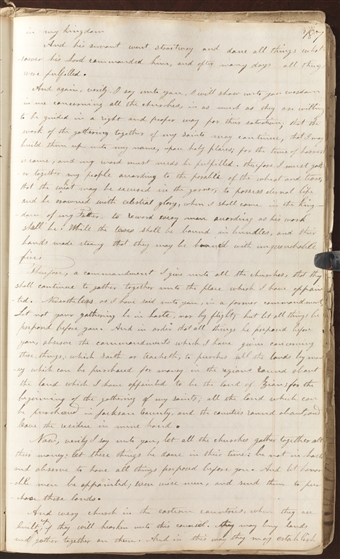 187
in my kingdom
And his servant went straitway and done all things what
soever his lord commanded him, and after many days all things
was fulfilled.
And again, verily I say unto you, I will show unto you wisdom
in me concerning all the churches, in as much as they are willing
to be guided in a right and proper way for their salvation, that the
work of the gathering together of my saints may continue, that I may
build them up unto my name, upon holy places, for the time of harvest
is come, and my word must needs be fulfilled. therefore I must gath
er together my people according to the parable of the wheat and tares,
that the wheat may be secured in the garner, to possess eternal life
and be crowned with celestial glory, when I shall come in the king
dom of my father, to reward every man according as his work
shall be: While the tares shall be bound in bundles, and their
bands made strong that they may be burned with unquenchable
fire.
Therefore, a commandment I give unto all the churches, that they
shall continue to gather together unto the place, which I have appoin
ted. Nevertheless, as I have said unto you, in a former commandment,
let not your gathering be in haste, nor by flight: but let all things be
prepared before you. And in order that all things be prepared before
you, observe the commandments which I have given concerning
these things, which saith or teacheth, to purchase all the lands by mon
ey which can be purchased for money in the region round about
the land which I have appointed to be the land of Zion; for the
beginning of the gathering of my saints; all the land which can
be purchased in Jackson County, and the counties round about, and
leave the residue in mine hand.
Now, verily I say unto you, let all the churches gather together all
their moneys; let these things be done in their time; be not in haste
and observe to have all things prepared before you. And let honor
able men be appointed, even wise men, and send them to pur
chase these lands.
And every church in the eastern countries, when they are
built up if they will hearken unto this counsel, they may buy lands
and gather together on them. And in this way they may establish